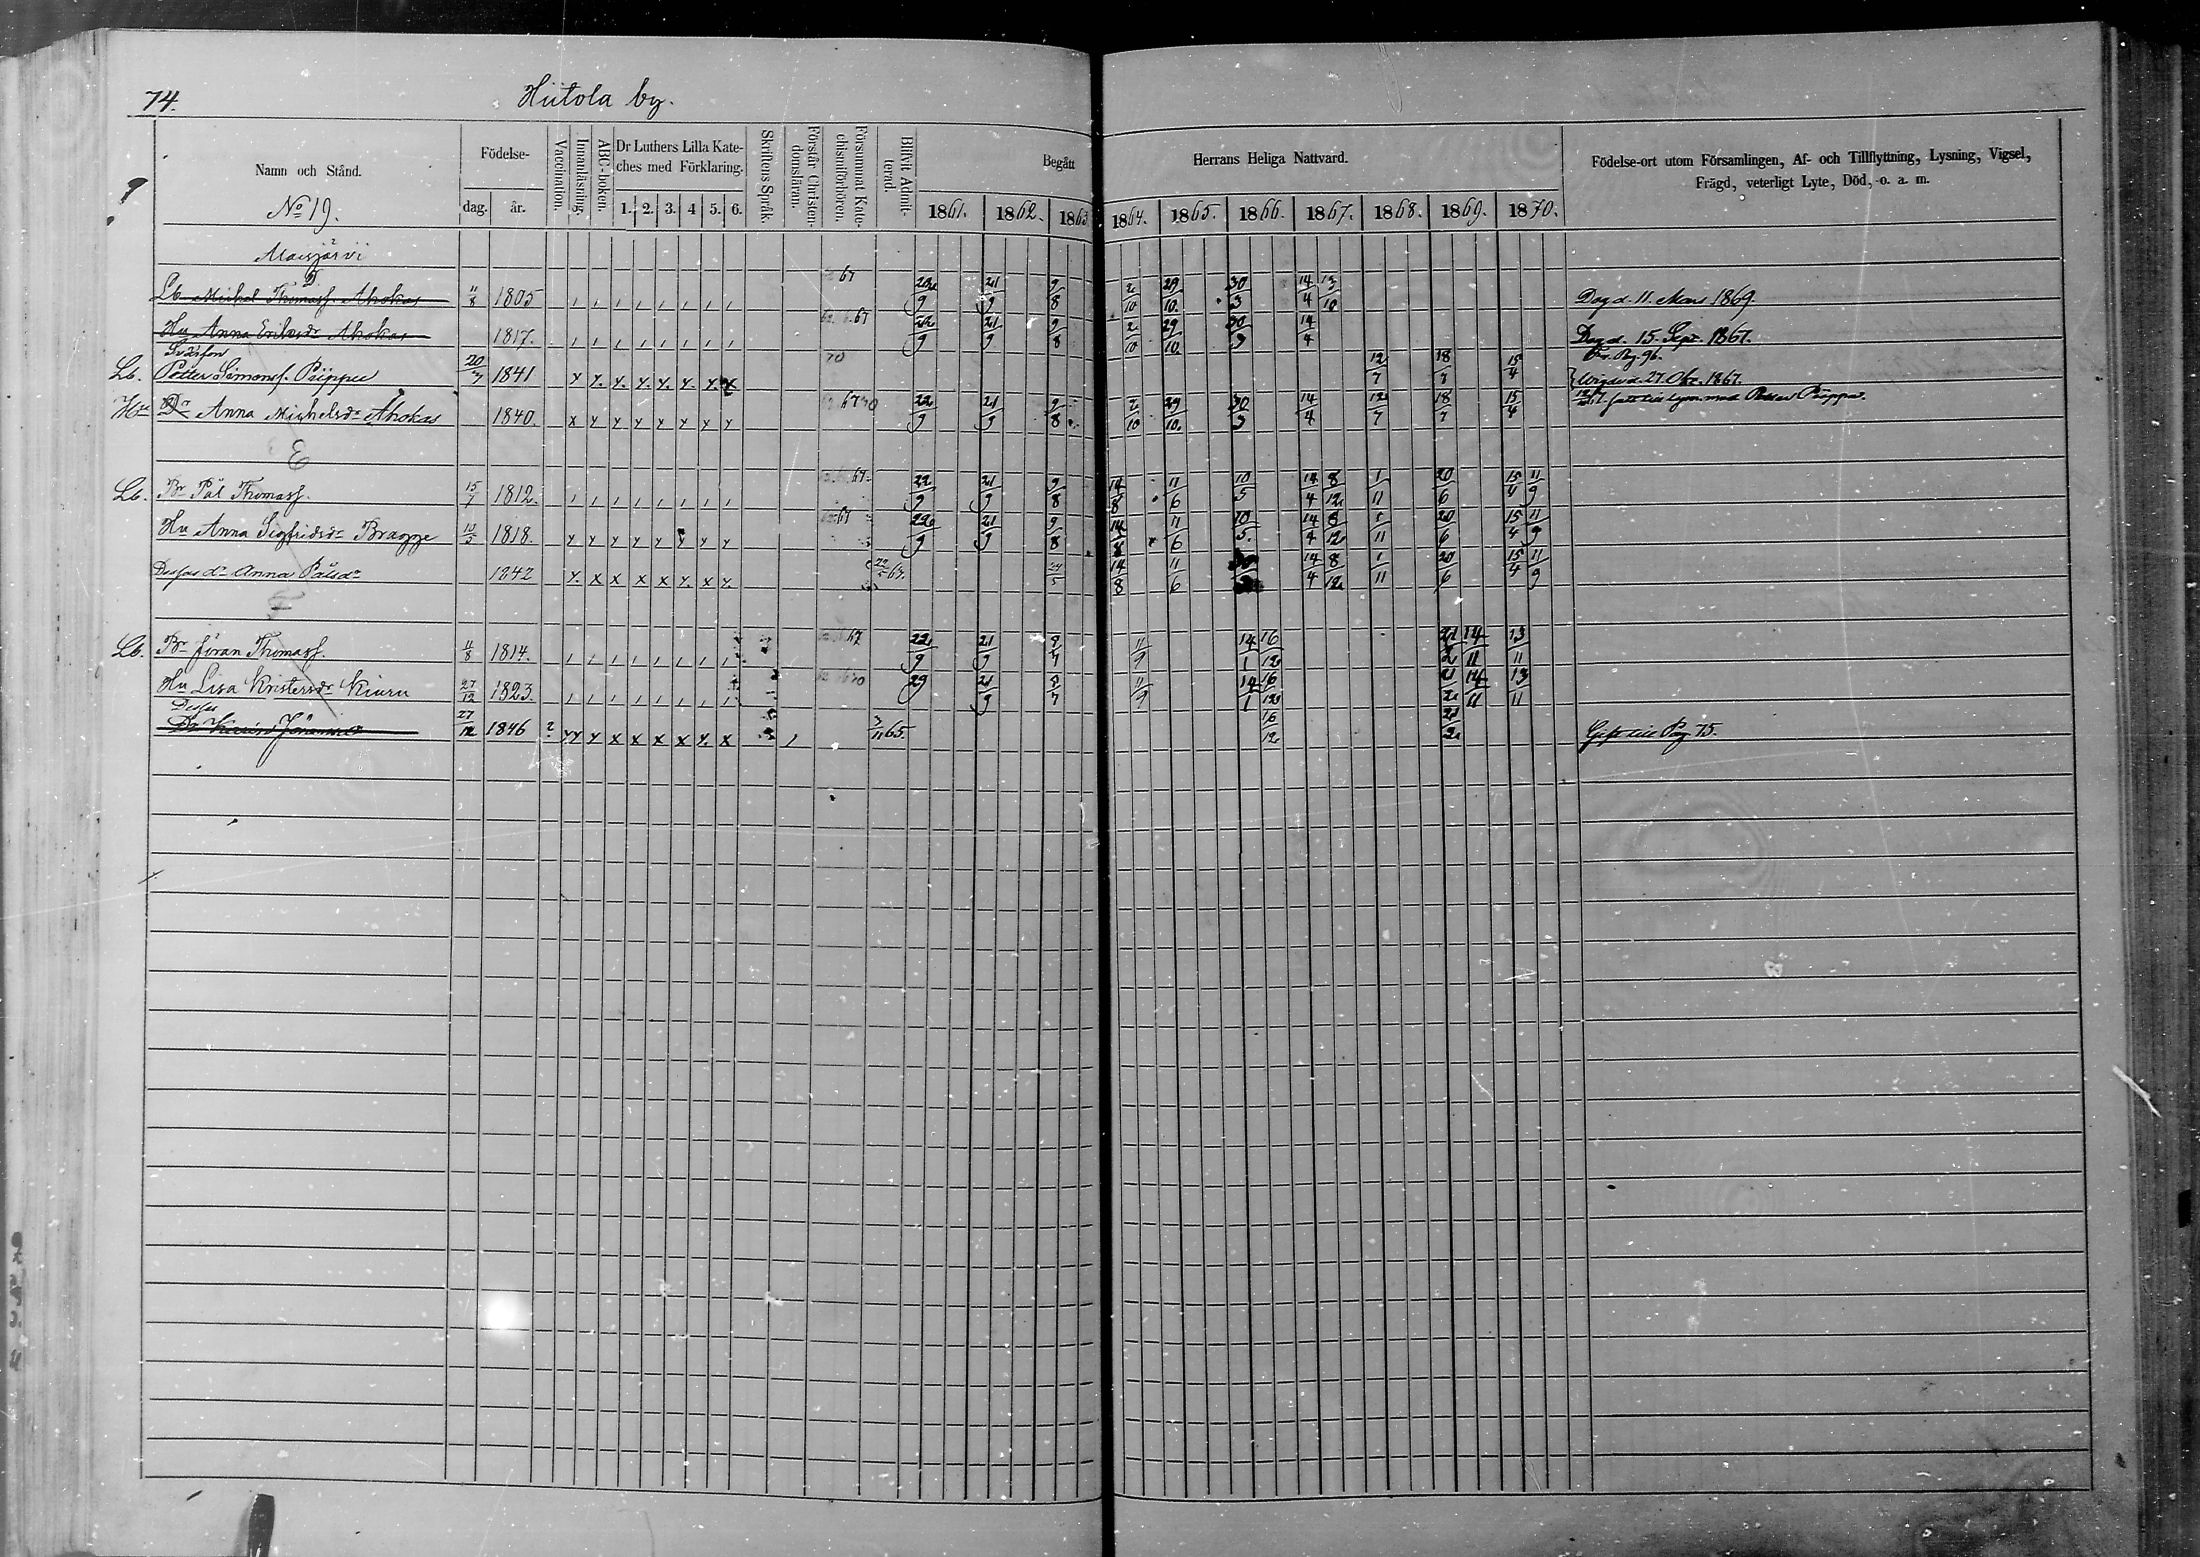 74. Hiitola by.
Namn och Stånd. Födelse- Vaccination. Innanläsning. ABC-boken. Dr Luthers Lilla Kateches med Förklaring. Skriftens Språk. Förstår Christendomsläran. Försummat Katechismiförhören. Blifvit Admitterad. Begått Herrans Heliga Nattvard. Födelse-ort utom Församlingen, Af- och Tillflyttning, Lysning, Vigsel,
Frägd, veterligt Lyte, Död, o. a. m.
No 19. dag. år. 1. 2. 3. 4 5. 6. 1861. 1862. 1863 1864. 1865. 1866. 1867. 1868. 1869. 1870.
Lb. Michel Thomasf. Ahokas 11/8 1805 67 22/9 21/9 9/8 2/10 29/10. 30/3 14/4 13/10 Dog d. 11 Mars 1869.
Hu Anna Eriksdr Ahokas 1817. 67 22/9 21/9 9/8 2/10 29/10. 30/3 14/4 Dog d. 15. Sept. 1867.
Svärson Fr. Pag. 96.
Lb. Petter Simonsf. Püppu 20/7 1841 70 12/7 18/7 15/4 Wigde d. 27. Obr. 1867.
Hu Dr Anna Michelsdr Ahokas 1840. 67 70 22/9 21/9 9/8 2/10 29/10. 30/3 14/4 12/7 18/7 15/4
E
Lb. Br Pål Thomasf. 15/7 1812. 67. 22/9 21/9 9/8 14/8 11/6 10/5 14/4 8/12 1/11 20/6 15/4 11/9
Hu Anna Sigfridsdr Bragge 1818. 67 22/9 21/9 9/8 14/8 11/6 10/5. 14/4 8/12 1/11 20/6 15/4 11/9
Dessas dr Anna Pålsdr 1842 24/5 14/8 11/6 14/4 8/12 1/11 20/6 15/4 11/9
Lb. Br Jöran Thomasf. 11/8 1814. 67 22/9 21/9 9/7 11/9 14/1 16/12 21/2 14/11 13/11
Hu Lisa Kristersdr Kiuru 27/12 1823. 70 29 21/9 9/7 11/9 14/1 16/12 21/2 14/11 13/11
Dessas
27/12 1846 3/11 65. 16/12 21/2 Gift till Pag. 75.